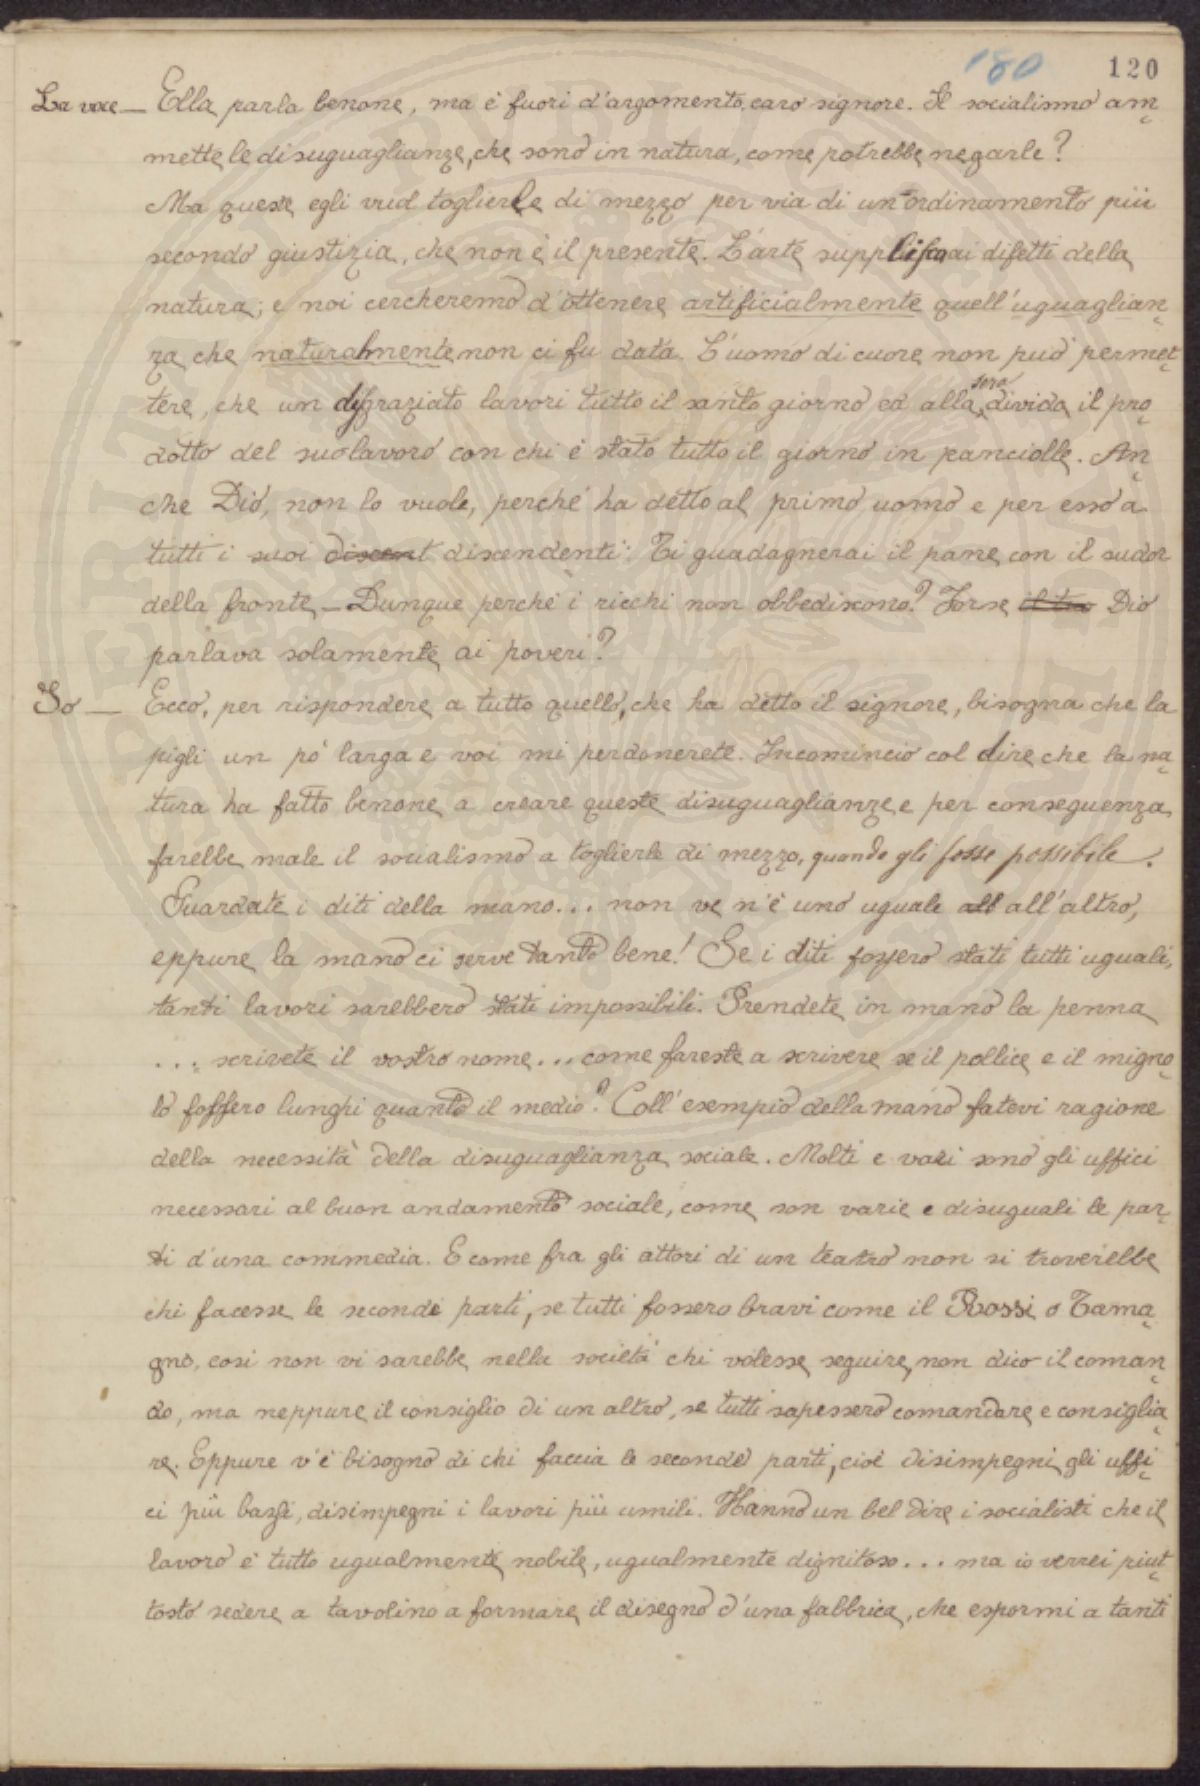 180 120
La voce — Ella parla benone, ma è fuori d'argomento, caro signore. Il socialismo am-
mette le disuguaglianze, che sono in natura, come potrebbe negarle?
Ma queste egli vuol toglierle di mezzo per via di un ordinamento più
secondo giustizia, che non è il presente. L'arte supplisca ai difetti della
natura; e noi cercheremo d'ottenere artificialmente quell'uguaglian-
za che naturalmente non ci fu data. L'uomo di cuore non può permet-
tere, che un disgraziato lavori tutto il santo giorno ed alla sera divida il pro-
dotto del suo lavoro con chi è stato tutto il giorno in panciolle. An-
che Dio, non lo vuole, perché ha detto al primo uomo e per esso a
tutti i suoi discent discendenti: Ti guadagnerai il pane con il sudor
della fronte — Dunque perché i ricchi non obbediscono? Forse Dio
parlava solamente ai poveri?
Io — Ecco, per rispondere a tutto quello, che ha detto il signore, bisogna che la
pigli un pò larga e voi mi perdonerete. Incomincio col dire che la na-
tura ha fatto benone a creare queste disuguaglianze e per conseguenza
farebbe male il socialismo a toglierle di mezzo, quando gli fosse possibile.
Guardate i diti della mano... non ve n'è uno uguale all all'altro,
eppure la mano ci serve tanto bene! Se i diti fossero stati tutti uguali,
tanti lavori sarebbero stati impossibili. Prendete in mano la penna
... scrivete il vostro nome... come fareste a scrivere se il pollice e il migno-
lo fossero lunghi quanto il medio? Coll'esempio della mano fatevi ragione
della necessità della disuguaglianza sociale. Molti e vari sono gli uffici
necessari al buon andamento sociale, come son varie e disuguali le par-
ti d'una commedia. E come fra gli attori di un teatro non si troverebbe
chi facesse le seconde parti, se tutti fossero bravi come il Rossi o Tama-
gno, così non vi sarebbe nella società chi volesse seguire, non dico il coman-
do, ma neppure il consiglio di un altro, se tutti sapessero comandare e consiglia-
re. Eppure v'è bisogno di chi faccia le seconde parti, cioè disimpegni gli uffi-
ci più bassi, disimpegni i lavori più umili. Hanno un bel dire i socialisti che il
lavoro è tutto ugualmente nobile, ugualmente dignitoso... ma io vorrei piut-
tosto sedere a tavolino a formare il disegno d'una fabbrica, che espormi a tanti